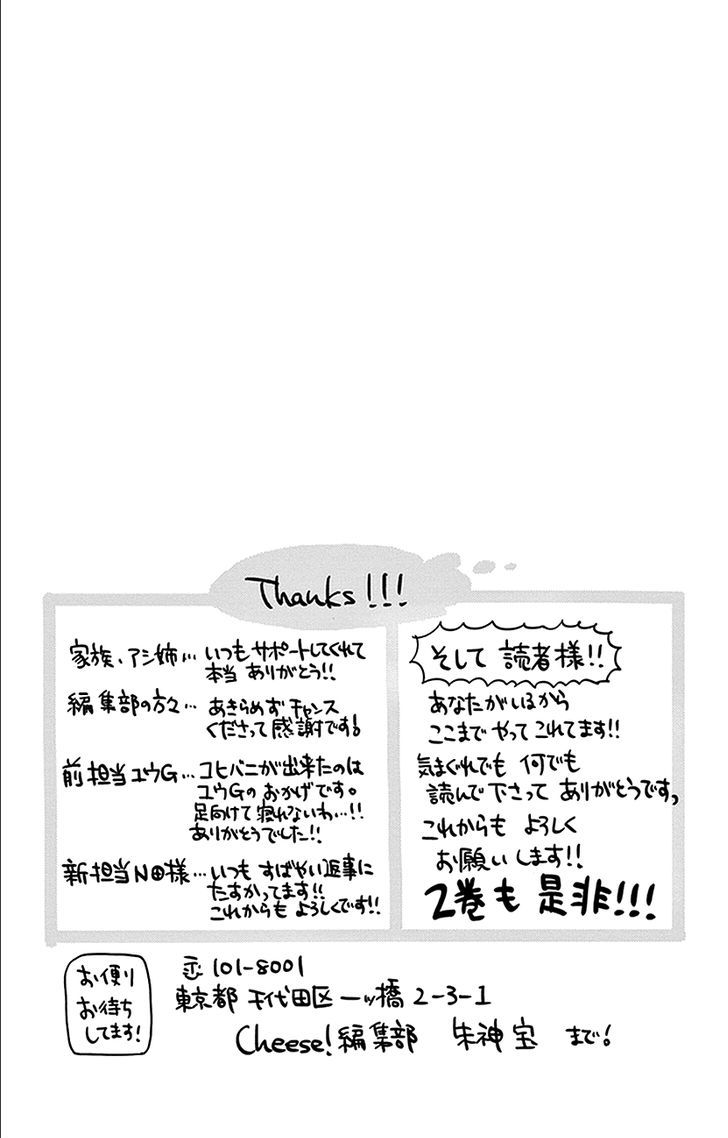 Thanks!!!
家族、アシ姉… いつもサポートしてくれて
本当 ありがとう!!
編集部の方々… あきらめず チャンス
くださって 感謝です!
前担当ユウG… コヒバニが出来たのは
ユウGの おかげです。
足向けて 寝れないわ…!!
ありがとうでした!!
新担当N田様… いつも すばやい返事に
たすかってます!!
これからも よろしくです!!
そして 読者様!!
あなたがいるから
ここまで やって これてます!!
気まぐれでも 何でも
読んで 下さって ありがとうですっ
これからも よろしく
お願いします!!
2巻も 是非!!!
お便り
お待ち
してます!
〒101-8001
東京都 千代田区 一ツ橋 2-3-1
Cheese!編集部 朱神宝 まで!